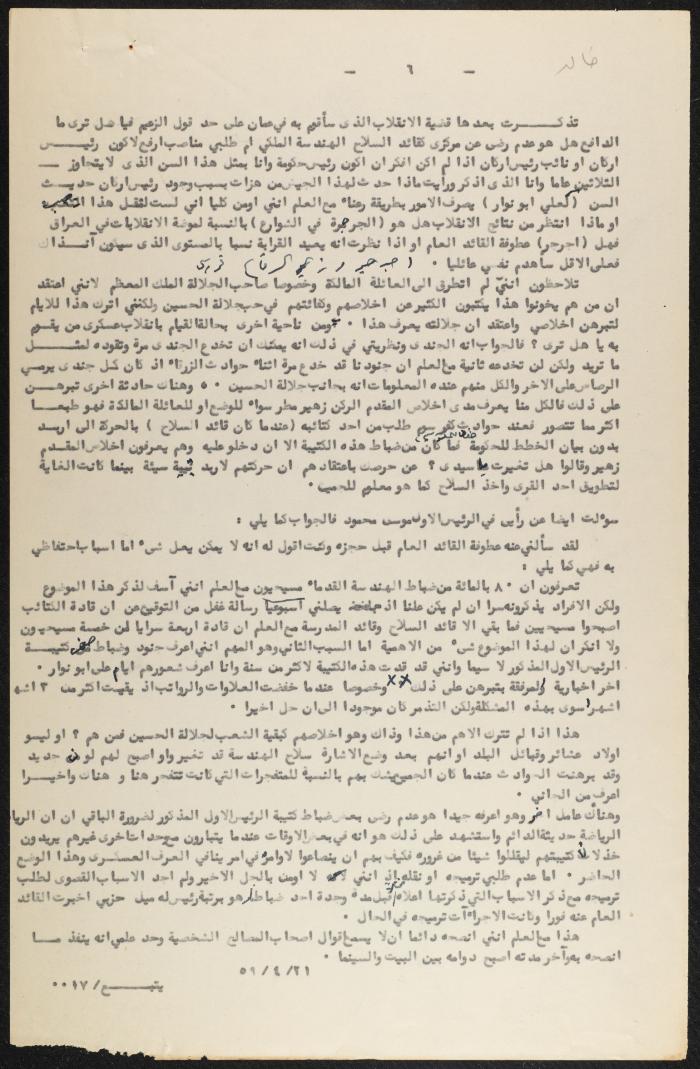 خالد
- ٦ -
تذكـــرت بعدها قضية الانقلاب الذى سأقوم به في عمان على حد قول الزعيم فيا هل ترى ما
الدافع هل هو عدم رضى عن مركزى كقائد السلاح الهندسة الملكي ام طلبي مناصب ارفع لاكون رئيس
اركان او نائب رئيس اركان اذا لم اكن افكر ان اكون رئيس حكومة وانا بمثل هذا السن الذى لا يتجاوز
الثلاثين عاما وانا الذى اذكر ورايت ماذا حدث لهذا الجيش من هزات بسبب وجود رئيس اركان حديث
السن (كعلي ابو نوار) يصرف الامور بطريقة رعناء مع العلم انني اومن كليا اني لست لثقل هذا المنصب
او ماذا انتظر من نتائج الانقلاب هل هو (الجرجرة في الشوارع) بالنسبة لموضة الانقلابات في العراق
فهل (اجرجر) عطوفة القائد العام او اذا نظرت انه بعيد القرابة نسبا بالمستوى الذى سيكون آنـذاك
فعلى الاقل ساهدم نفسي عائليا .
تلاحظون انني لم اتطرق الى العائلة المالكة وخصوصا صاحب الجلالة الملك المعظم لانني اعتقد
ان من هم يخونوا هذا ينكتبون الكثير عن اخلاصهم وكفائتهم في حب جلالة الحسين ولكنني اترك هذا للايام
لتبرهن اخلاصي واعتقد ان جلالته يعرف هذا . ومن ناحية اخرى بحالة القيام بانقلاب عسكرى من يقوم
به يا هل ترى ؟ فالجواب انه الجندى ونظريتي في ذلك انه يمكنك ان تخدع الجندى مرة وتقوده لمثــل
ما تريد ولكن لن تخدعه ثانية مع العلم ان جنودنا قد خدع مرة اثناء حوادث الزرقاء اذ كان كل جندى يرمي
الرصاص على الاخر والكل منهم عنده المعلومات انه بجانب جلالة الحسين .. وهناك حادثة اخرى تبرهــن
على ذلك فالكل منا يعرف مدى اخلاص المقدم الركن زهير مطر سواء للوضع او للعائلة المالكة فهو طبعــا
اكثر مما تتصور فعند حوادث كفرسوم طلب من احد كتائبه (عندما كان قائد السلاح) بالحركة الى اربـد
بدون بيان الخطط للحكومة فما كان من ضباط هذه الكتيبة الا ان دخلو عليه وهم يعرفون اخلاص المقـدم
زهير وقالوا هل تغيرت يا سيدى ؟ عن حرصك باعتقادهم ان حركتهم لاربد بنية سيئة بينما كانت الغاية
لتطويق احد القرى واخذ السلاح كما هو معلوم للجميع .
سوءلت ايضا عن رأيى في الرئيس الاول موسى محمود فالجواب كما يلي :
لقد سألني عنه عطوفة القائد العام قبل حجزه وكنت اقول له انه لا يمكن يعمل شىء اما اسباب احتفاظي
به فهي كما يلي :
تعرفون ان ٨٠ بالمائة من ضباط الهندسة القدماء مسيحيون مع العلم انني آسف لذكر هذا الموضوع
ولكن الافراد يذكرونه سرا ان لم يكن علنا اذ يصلني اسبوعيا رسالة غفل من التوقيع عن ان قادة الكتائب
اصبحوا مسيحيين فما بقي الا قائد السلاح وقائد المدرسة مع العلم ان قادة اربعة سرايا لمن خمسة مسيحيون
ولا انكر ان لهذا الموضوع شىء من الاهمية اما السبب الثاني وهو المهم انني اعرف جنود وضباط كتيبـة
الرئيس الاول المذكور لا سيما وانني قد قدت هذه الكتيبة لاكثر من سنة وانا اعرف شعورهم ايام على ابو نوار .
اخر اخبارية المرفقة يتبرهن على ذلك ×× وخصوصا عندما خفضت العلاوات والرواتب اذ بقيت اكثر من ٣ اشه
اشهر اسوى بهذه المشكلة ولكن التذمر كان موجودا الى ان حل اخيرا .
هذا اذا لم تترك الاهم من هذا وذاك وهو اخلاصهم كبقية الشعب لجلالة الحسين فمن هم ؟ او ليسو
اولاد عشائر وقبائل البلد او انهم بعد وضع الاشارة سلاح الهندسة قد تغير واو اصبح لهم لون جديد
وقد برهنت الحوادث عندما كان الجميع يشك بهم بالنسبة للمتفجرات التي كانت تنفجر هنا و هناك واخيـرا
اعرف من الجاني .
وهناك عامل اخر وهو اعرفه جيدا هو عدم رضى بعض ضباط كتيبة الرئيس الاول المذكور لضرورة الباقي ان ان الريا
الرياضة حديثة الدائم واستشهد على ذلك هو انه في بعض الاوقات عندما يتبارون مع وحدات اخرى غيرهم يريدون
خذلان كتيبتهم ليقللوا شيئا من غروره فكيف بهم ان ينصاعوا لاوامره في امر ينافي العرف العسكرى وهذا الوضع
الحاضر . اما عدم طلبي ترميجه او نقله اذ انني لا اومن بالحل الاخير ولم اجد الاسباب القصوى لطلب
ترميجه مع ذكر الاسباب التي ذكرتها اعلاه قبل مدة وجدة احد ضباط هو برتبة رئيس له ميل حزبي اخبرت القائد
العام عنه فورا وكانت الاجراءآت ترميجه في الحال .
هذا مع العلم انني انصحه دائما ان لا يسمع اقوال اصحاب المصالح الشخصية وحد علمي انه ينفذ مــا
انصحه به وآخر مدته اصبح دوامه بين البيت والسينما .
٥٩/٤/٢١
يتبــــع/ ٠٠١٧